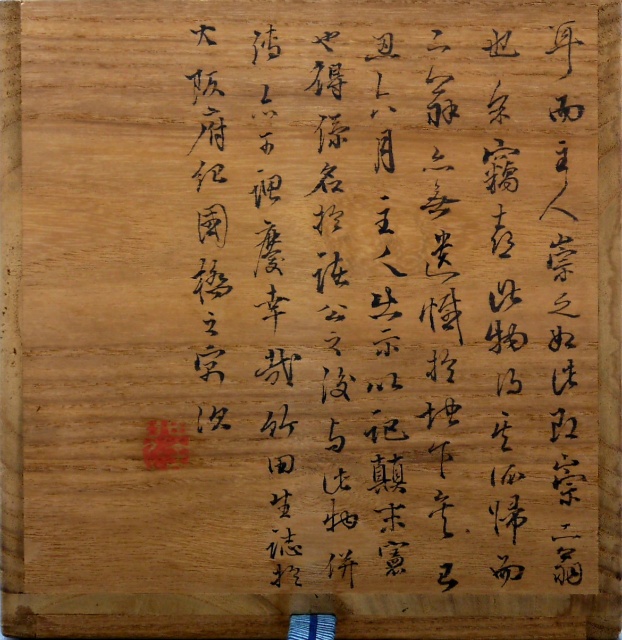 耳而主人崇之如此即崇二翁
也余竊喜此物得其所歸而
二翁亦無遺憾於地下矣己
丑六月主人出示以記顛末寔
也得保名於諸公之後与此物併
傳亦可謂慶幸哉竹田生誌於
大阪府紀國橋之寓次